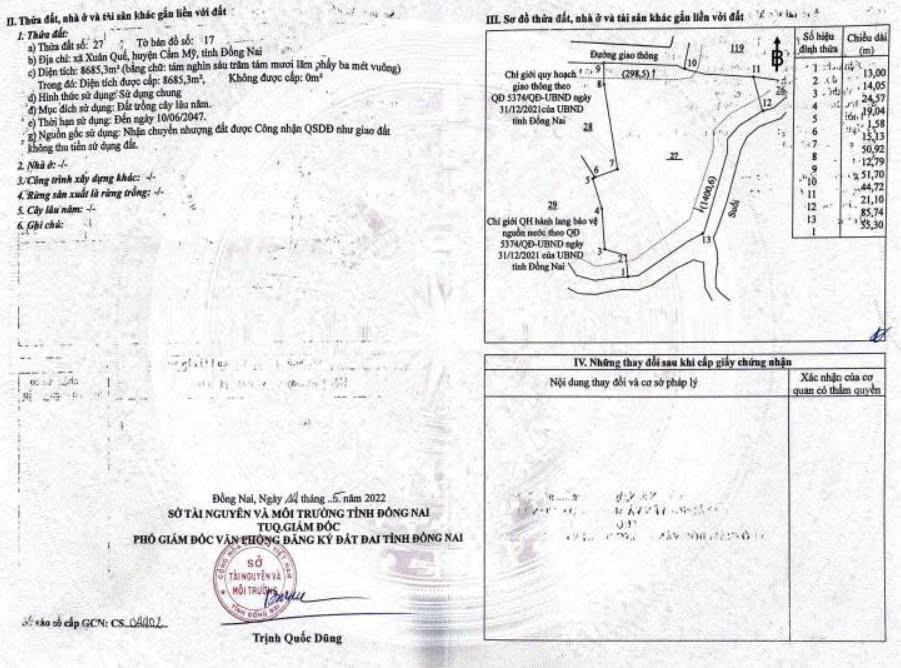 II. Thửa đất, nhà ở và tài sản khác gắn liền với đất
1. Thửa đất:
a) Thửa đất số: 27 ; Tờ bản đồ số: 17
b) Địa chỉ: xã Xuân Quế, huyện Cẩm Mỹ, tỉnh Đồng Nai
c) Diện tích: 8685,3m² (bằng chữ: tám nghìn sáu trăm tám mươi lăm phẩy ba mét vuông)
Trong đó: Diện tích được cấp: 8685,3m², Không được cấp: 0m²
d) Hình thức sử dụng: Sử dụng chung
đ) Mục đích sử dụng: Đất trồng cây lâu năm.
e) Thời hạn sử dụng: Đến ngày 10/06/2047.
g) Nguồn gốc sử dụng: Nhận chuyển nhượng đất được Công nhận QSDĐ như giao đất
không thu tiền sử dụng đất.
2. Nhà ở: -/-
3. Công trình xây dựng khác: -/-
4. Rừng sản xuất là rừng trồng: -/-
5. Cây lâu năm: -/-
6. Ghi chú:
Đồng Nai, Ngày tháng 5 năm 2022
SỞ TÀI NGUYÊN VÀ MÔI TRƯỜNG TỈNH ĐỒNG NAI
TUQ.GIÁM ĐỐC
PHÓ GIÁM ĐỐC VĂN PHÒNG ĐĂNG KÝ ĐẤT ĐAI TỈNH ĐỒNG NAI
CỘNG HÒA VIỆT NAM
SỞ
TÀI NGUYÊN VÀ
MÔI TRƯỜNG
TỈNH ĐỒNG NAI
vào sổ cấp GCN: CS
Trịnh Quốc Dũng
III. Sơ đồ thửa đất, nhà ở và tài sản khác gắn liền với đất
Đường giao thông
119
B
Chỉ giới quy hoạch
giao thông theo
QĐ 5374/QĐ-UBND ngày
31/12/2021của UBND
tỉnh Đồng Nai
9
(298,5)
10
11
26
8
12
28
27
7
6
5
29
4
(1400,6)
Suối
Chỉ giới QH hành lang bảo vệ
nguồn nước theo QĐ
5374/QĐ-UBND ngày
31/12/2021 của UBND
tỉnh Đồng Nai
3
2
1
13
Số hiệu đỉnh thửa
Chiều dài (m)
1
13,00
2
14,05
3
24,57
4
19,04
5
1,58
6
15,13
7
50,92
8
12,79
9
51,70
10
44,72
11
21,10
12
85,74
13
55,30
1
IV. Những thay đổi sau khi cấp giấy chứng nhận
Nội dung thay đổi và cơ sở pháp lý
Xác nhận của cơ
quan có thẩm quyền